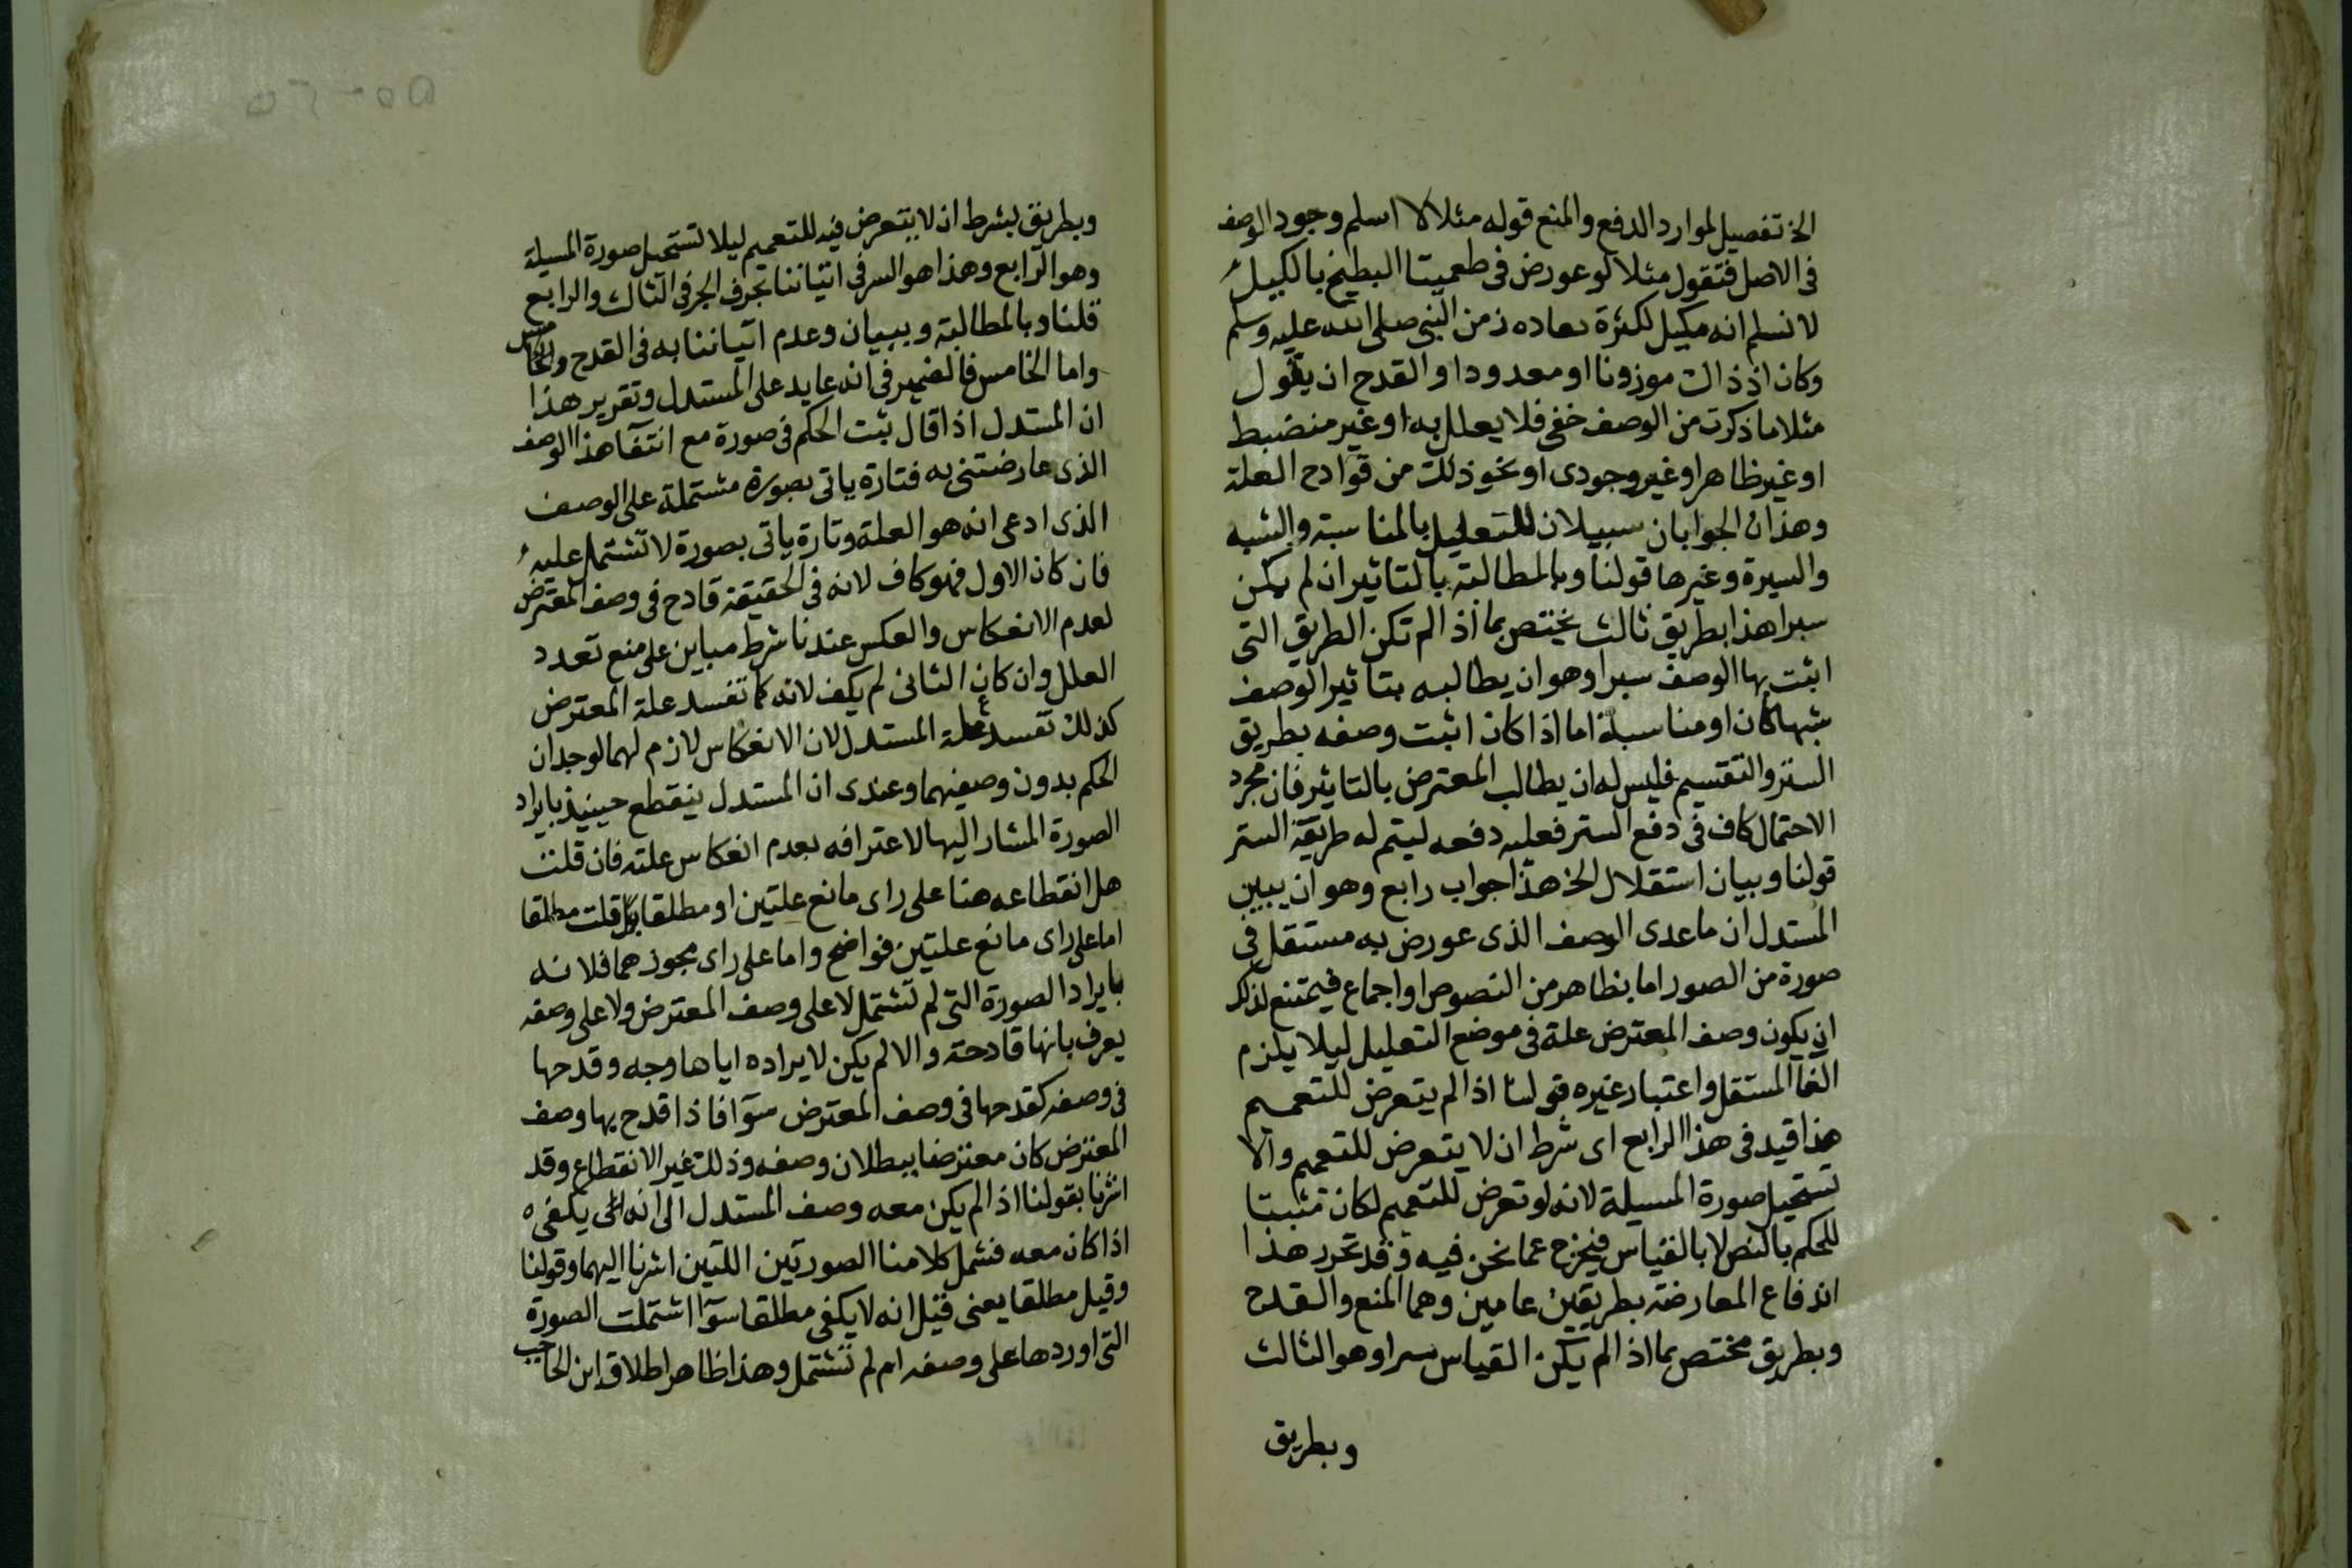 الخ تفصيل لموارد الدفع والمنع قوله مثلا لا اسلم وجود الوصف
فى الاصل فتقول مثلا لو عورض فى طعميتا البطيخ بالكيل
لا نسلم انه مكيل لكثرة زمن النبى صلى الله عليه وسلم
وكان اذ ذاك موزونا او معدودا والقدح ان يقول
مثلا ما ذكرت من الوصف خفى فلا يعلل به او غير منضبط
او غير ظاهر او غير وجودى او نحو ذلك من قوادح العلة
وهذان الجوابان سبيلان للتعليل بالمناسبة والشبه
والسيرة وغيرها قولنا وبالمطالبة بالتاثير ان لم يكن
سبرا هذا بطريق ثالث يختص بما اذا لم تكن الطريق التى
اثبت بها الوصف سبرا وهو ان يطالبه بتاثير الوصف
شبها كان او مناسبة اما اذا كان اثبت وصفه بطريق
الستر والتقسيم فليس له ان يطالب المعترض بالتاثير فان مجرد
الاحتمال كاف فى دفع الستر فعليه دفعه ليتم له طريقة الستر
قولنا وبيان استقلال الخ هذا جواب رابع وهو ان يبين
المستدل ان ما عدى الوصف الذى عورض به مستقل فى
صورة من الصور اما بظاهر من النصوص او اجماع فيمتنع لذلك
ان يكون وصف المعترض علة فى موضع التعليل ليلا يلزم
الغا المستقل واعتبار غيره قولنا اذا لم يتعرض للتعميم
هذا قيد فى هذا الرابع اى شرط ان لا يتعرض للتعميم والا
تستحيل صورة المسيلة لانه لو تعرض للتعميم لكان مثبتا
للحكم بالنص لا بالقياس فيخرج عما نحن فيه وقد تحرر هذا
اندفاع المعارضة بطريقين عامين وهما المنع والقدح
وبطريق مختص بما اذا لم يكن القياس سبرا وهو الثالث
وبطريق
وبطريق بشرط ان لا يتعرض فيه للتعميم ليلا تستحيل صورة المسيلة
وهو الرابع وهذا هو السر فى اتياننا بحرف الجر فى الثالث والرابع
قلنا وبالمطالبة وببيان وعدم اتياننا به فى القدح والخامس
واما الخامس فالضمير فى انه عايد على المستدل وتقرير هذا
ان المستدل اذا قال ثبت الحكم فى صورة مع انتفآ هذا الوصف
الذى عارضتنى به فتارة ياتى بصورة مشتملة على الوصف
الذى ادعى انه هو العلة وتارة ياتى بصورة لا تشتمل عليه
فان كان الاول فهو كاف لانه فى الحقيقة قادح فى وصف المعترض
لعدم الانعكاس والعكس عندنا شرط مباين على منع تعدد
العلل وان كان الثانى لم يكف لانه كما تفسد علة المعترض
كذلك تفسد علة المستدل لان الانعكاس لازم لهما لوجدان
الحكم بدون وصفيهما وعندى ان المستدل ينقطع حينيذ بايراد
الصورة المشار اليها لاعترافه بعدم انعكاس علته فان قلت
هل انقطاعه هنا على راى مانع علتين او مطلقا قلت مطلقا
اما على راى مانع علتين فواضح واما على راى مجوزهما فلانه
بايراد الصورة التى لم تشتمل لا على وصف المعترض ولا على وصفه
يعرف بانها قادحة والا لم يكن لايراده اياها وجه وقدحها
فى وصفه كقدحها فى وصف المعترض سوآ فاذا قدح بها وصف
المعترض كان معترضا ببطلان وصفه وذلك غير الانقطاع وقد
اشرنا بقولنا اذا لم يكن معه وصف المستدل الى انه يكفى
اذا كان معه فشمل كلامنا الصورتين اللتين اشرنا اليهما وقولنا
وقيل مطلقا يعنى قيل انه لا يكفى مطلقا سوآ اشتملت الصورة
التى اوردها على وصفه ام لم تشتمل وهذا ظاهر اطلاق ابن الحاجب